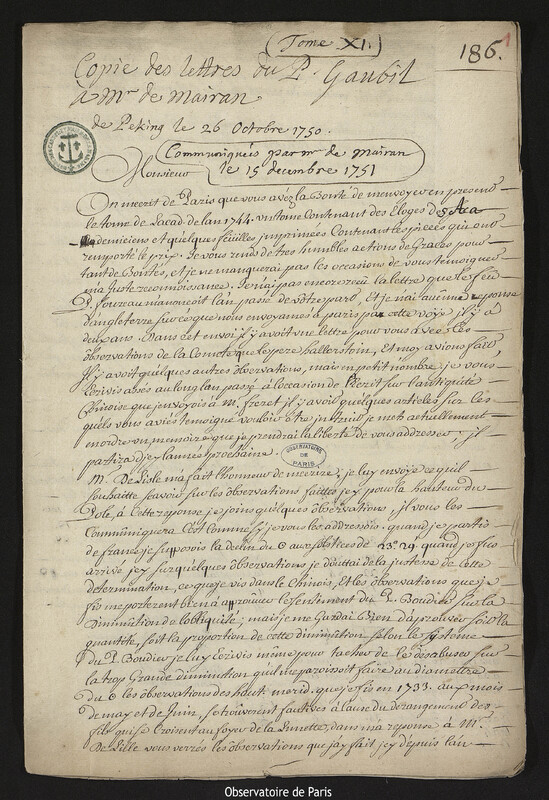 (Tome XI.)
186.
1
Copie des lettres du P. Gaubil
à Mr de Mairan
de Peking le 26 Octobre 1750.
Communiqués par mr de Mairan
le 15 decembre 1751
Monsieur
On mecrit de Paris que vous avéz la Bonté de menvoyer en present
le tome de Lacad. de lan 1744. un tome Contenant des éloges des Aca
demiciens et quelques feüilles imprimées Contenant les pieces qui ont
remporté le prix. Je vous rends de tres humbles actions de Graces pour
tant de Bontés, et je ne manquerai pas les occasions de vous temoigner
ma Juste reconnoissance. Je n'ai pas encore reçu la lettre que le feu
P. foureau m'anonçoit lan passé de votre part, et je n'ai aucune reponse
d'angleterre sur ce que nous envoyames à paris par cette voye il y a
deux ans. Dans cet envoi il y avoit une lettre pour vous avec les
observations de la Comete que le pere hallerstein, Et moy avions fait
Il y avoit quelques autres observations, mais en petit nombre; je vous
Ecrivis assés au long lan passé à l'occasion de l'Ecrit sur l'antiquité
Chinoise que j'envoyois à Mr. freret il y avoit quelques articles sur les
quels vous aviés temoigné vouloir être instruit je mets actuellement
en ordre un memoire que je prendrai la liberté de vous addresser; il
partira d'jcy lannée prochaine.
OBSERVATOIRE DE PARIS
M. De Lisle m'a fait l'honneur de m'ecrire; je luy envoye ce qu'il
souhaitte scavoir sur les observations faittes jcy pour la hauteur du
Pole, à cette reponse je joins quelques observations, jl vous les
Communiquera C'est Comme si je vous les addressois. quand je partis
de france je suposois la declin. du aux solstices de 23°. 29'. quand je fus
arrivé jcy sur quelques observations je douttai de la justesse de cette
determination, ce que je vis dans le Chinois, Et les observations que je
fis me porterent bien à aprouver le sentiment du P. Boudier sur la
Diminution de l'obliquité; mais je me Gardai Bien d'aprouver soit la
quantité, soit la proportion de cette diminution selon le systeme
du P. Boudier je luy Ecrivis même pour tacher de le desabuser sur
la trop Grande diminution qu'il me paroissoit faire au diametre
du les observations des haut. merid. que je fis en 1733. aux mois
de may et de Juin, se trouverent fautives à Cause du derangement des
fils qui se Croisent au foyer de la Lunette, dans ma reponse à Mr.
De Lille vous verrés les observations que j'ay fait jcy depuis l'an
Observatoire de Paris